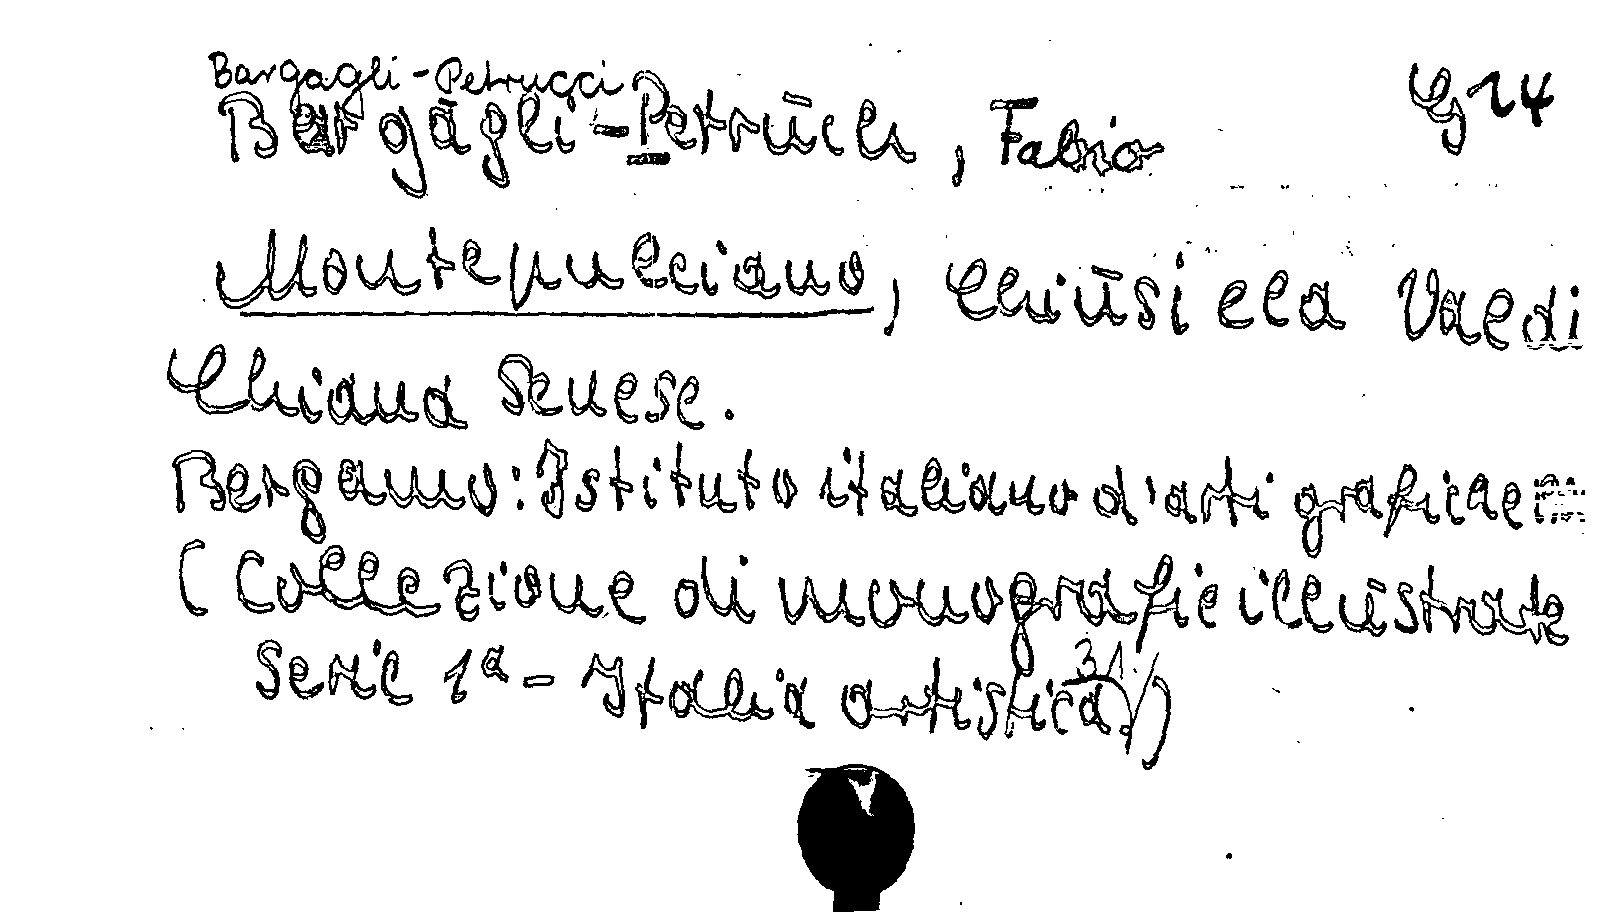 Bargagli-Petrucci
Bargāgli-Petrūcci, Fabio G 14
Montepulciano, Chiūsi e la Val di
Chiana Senese.
Bergamo: Istituto italiano d'arti grafiche
(Collezione di monografie illūstrate
Serie 1ª - Italia artistica 31.)